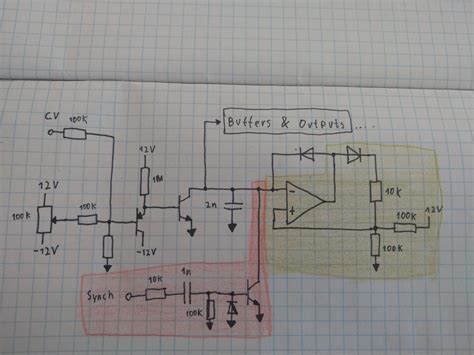 Buffers & Outputs ....
CV
100K
12V
12V
1M
10K
12V
100K
100K
100K
2n
-12V
-12V
100K
1n
Synch
10K
100K
-
+